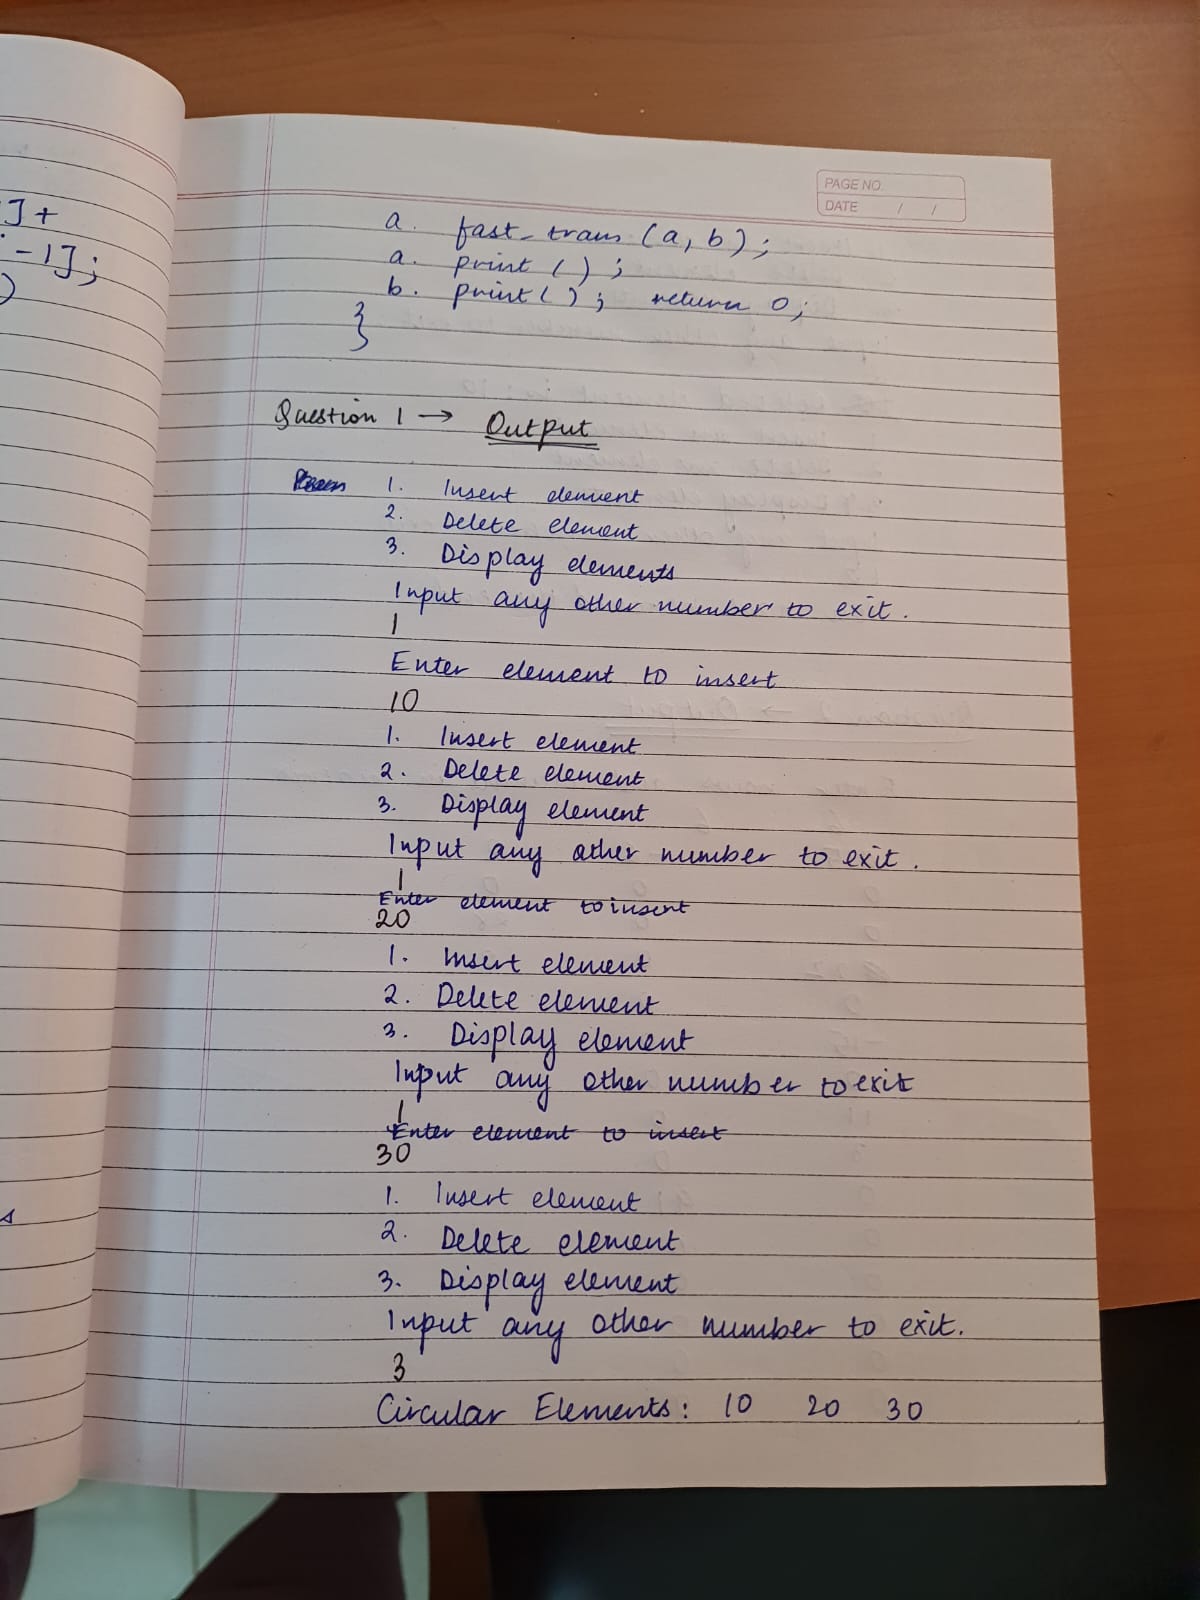 ] +
- 1];
)
s
PAGE NO.
DATE / /
a. fast_trans (a, b);
a. print ( );
b. print ( ); return 0;
}
Question 1 → Output
1. Insert element
2. Delete element
3. Display elements
Input any other number to exit.
1
Enter element to insert
10
1. Insert element
2. Delete element
3. Display element
Input any other number to exit.
1
Enter element to insert
20
1. Insert element
2. Delete element
3. Display element
Input any other number to exit
1
Enter element to insert
30
1. Insert element
2. Delete element
3. Display element
Input any other number to exit.
3
Circular Elements: 10 20 30